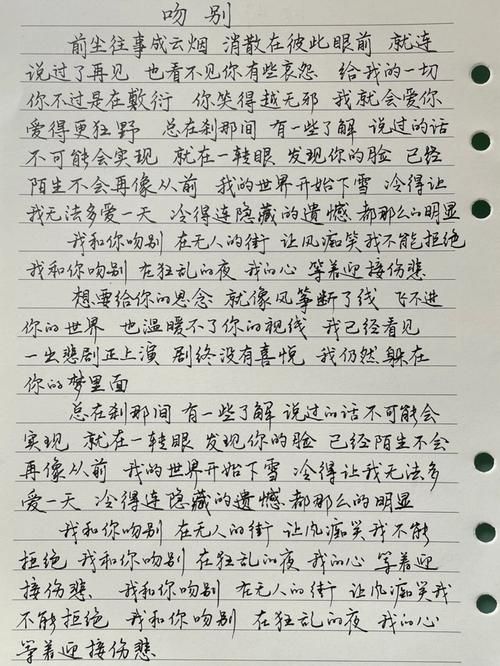 吻别
前尘往事成云烟 消散在彼此眼前 就连
说过了再见 也看不见你有些哀怨 给我的一切
你不过是在敷衍 你笑得越无邪 我就会爱你
爱得更狂野 总在刹那间 有一些了解 说过的话
不可能会实现 就在一转眼 发现你的脸 已经
陌生不会再像从前 我的世界开始下雪 冷得让
我无法多爱一天 冷得连隐藏的遗憾 都那么的明显
我和你吻别 在无人的街 让风痴笑我不能拒绝
我和你吻别 在狂乱的夜 我的心 等着迎接伤悲
想要给你的思念 就像风筝断了线 飞不进
你的世界 也温暖不了你的视线 我已经看见
一出悲剧正上演 剧终没有喜悦 我仍然躲在
你的梦里面
总在刹那间 有一些了解 说过的话不可能会
实现 就在一转眼 发现你的脸 已经陌生不会
再像从前 我的世界开始下雪 冷得让我无法多
爱一天 冷得连隐藏的遗憾都那么的明显
我和你吻别 在无人的街 让风痴笑我不能
拒绝 我和你吻别 在狂乱的夜 我的心 等着迎
接伤悲 我和你吻别 在无人的街 让风痴笑我
不能拒绝 我和你吻别 在狂乱的夜 我的心
等着迎接伤悲